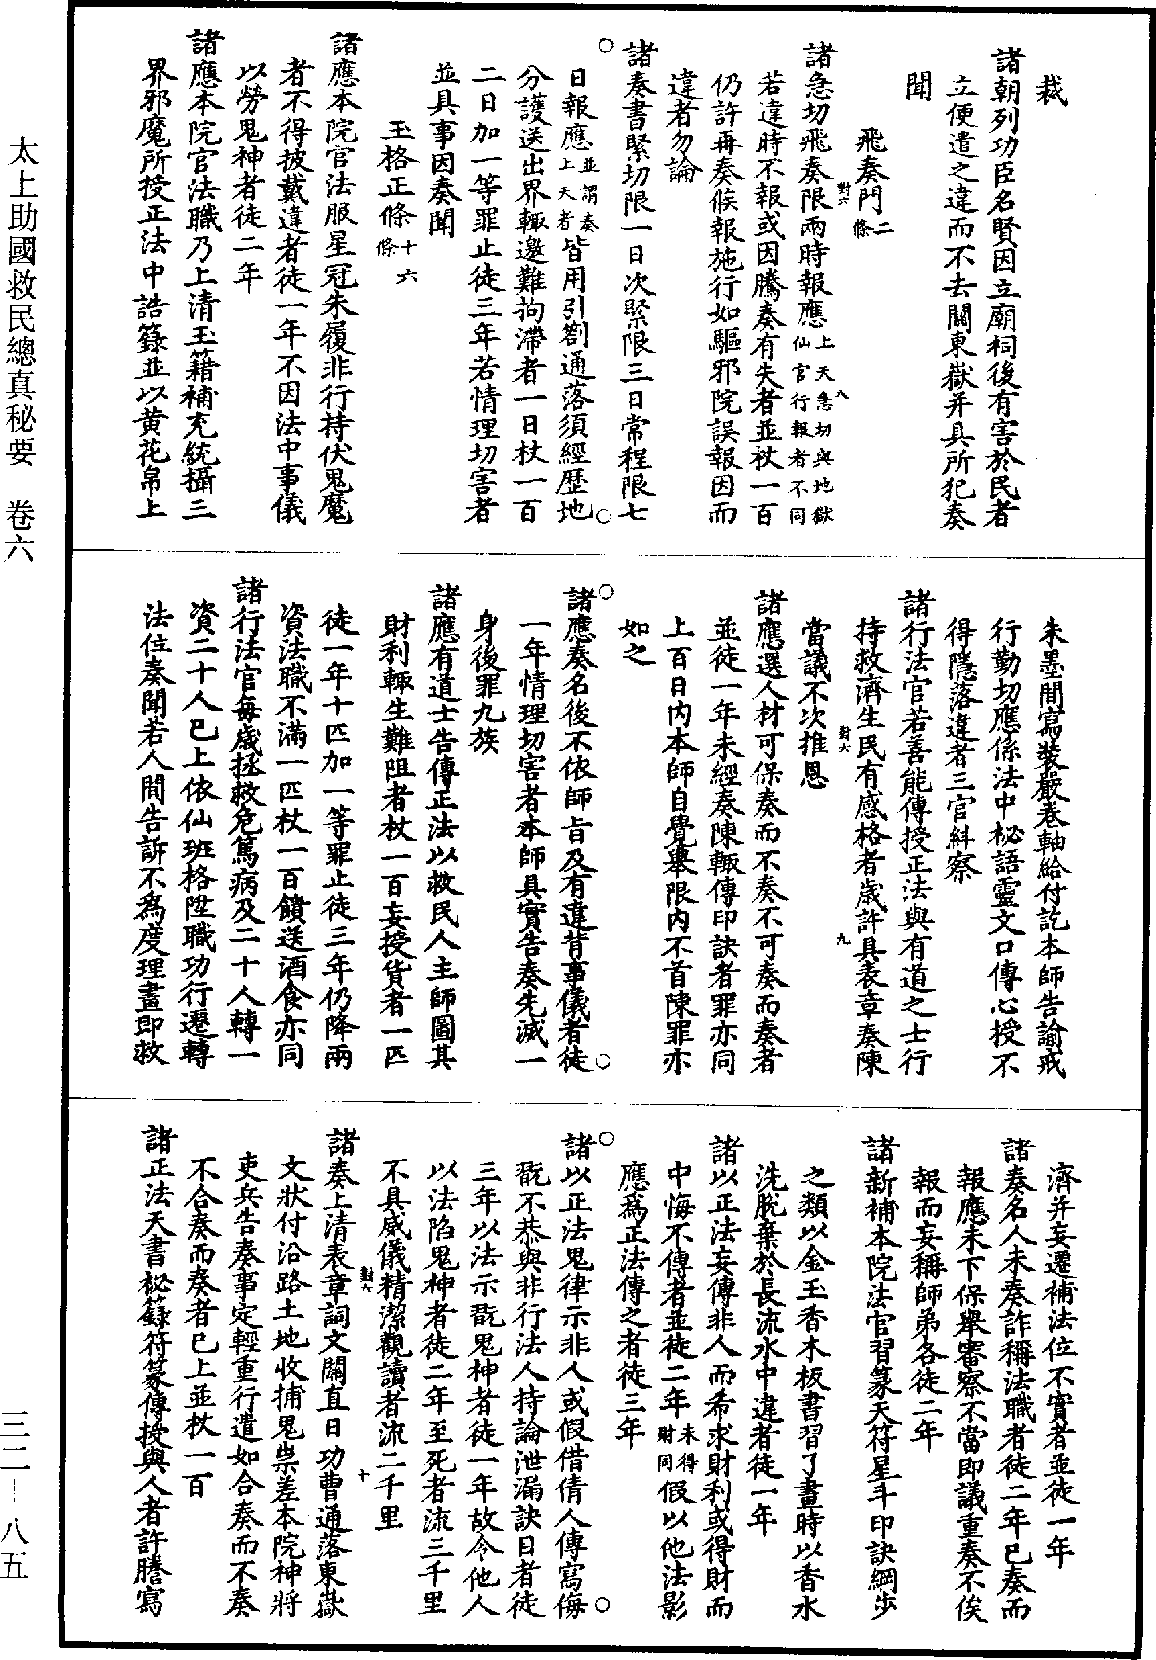 太上助國救民總真秘要　卷六
三二－八五
裁
諸朝列功臣名賢因立廟祠後有害於民者
立便遣之違而不去關東嶽并具所犯奏
聞
飛奏門二條
對六
諸急切飛奏限兩時報應上天急切與地獄仙官行報者不同
八
若違時不報或因騰奏有失者並杖一百
仍許再奏候報施行如驅邪院誤報因而
違者勿論
諸奏書緊切限一日次緊限三日常程限七
日報應並謂奏上天者皆用引劄通落須經歷地
分護送出界輒邀難拘滯者一日杖一百
二日加一等罪止徒三年若情理切害者
並具事因奏聞
玉格正條十六條
諸應本院官法服星冠朱履非行持伏鬼魔
者不得披戴違者徒一年不因法中事儀
以勞鬼神者徒二年
諸應本院官法職乃上清玉籍補充統攝三
界邪魔所授正法中誥籙並以黃花帛上
朱墨間寫裝嚴卷軸給付訖本師告諭戒
行勤切應係法中秘語靈文口傳心授不
得隱落違者三官糾察
諸行法官若善能傳授正法與有道之士行
持救濟生民有感格者歲許具表章奏陳
對六
九
當議不次推恩
諸應選人材可保奏而不奏不可奏而奏者
並徒一年未經奏陳輒傳印訣者罪亦同
上百日內本師自覺舉限內不首陳罪亦
如之
諸應奏名後不依師旨及有違背事儀者徒
一年情理切害者本師具實告奏先滅一
身後罪九族
諸應有道士告傳正法以救民人主師圖其
財利輒生難阻者杖一百妄授貨者一匹
徒一年十匹加一等罪止徒三年仍降兩
資法職不滿一匹杖一百饋送酒食亦同
諸行法官每歲拯救危篤病及二十人轉一
資二十人已上依仙班格陞職功行遷轉
法位奏聞若人間告訴不為度理畫即救
濟并妄遷補法位不實者並徒一年
諸奏名人未奏詐稱法職者徒二年已奏而
報應未下保舉審察不當即議重奏不俟
報而妄稱師弟各徒二年
諸新補本院法官習篆天符星斗印訣綱步
之類以金玉香木板書習了畫時以香水
洗脫棄於長流水中違者徒一年
諸以正法妄傳非人而希求財利或得財而
中悔不傳者並徒二年未得財同假以他法影
應為正法傳之者徒三年
諸以正法鬼律示非人或假借倩人傳寫侮
翫不恭與非行法人持論泄漏訣目者徒
三年以法示翫鬼神者徒一年故令他人
以法陷鬼神者徒二年至死者流三千里
不具威儀精潔觀讀者流二千里
對六
十
諸奏上清表章詞文關直日功曹通落東嶽
文狀付沿路土地收捕鬼祟差本院神將
吏兵告奏事定輕重行遣如合奏而不奏
不合奏而奏者已上並杖一百
諸正法天書秘籙符篆傳授與人者許謄寫